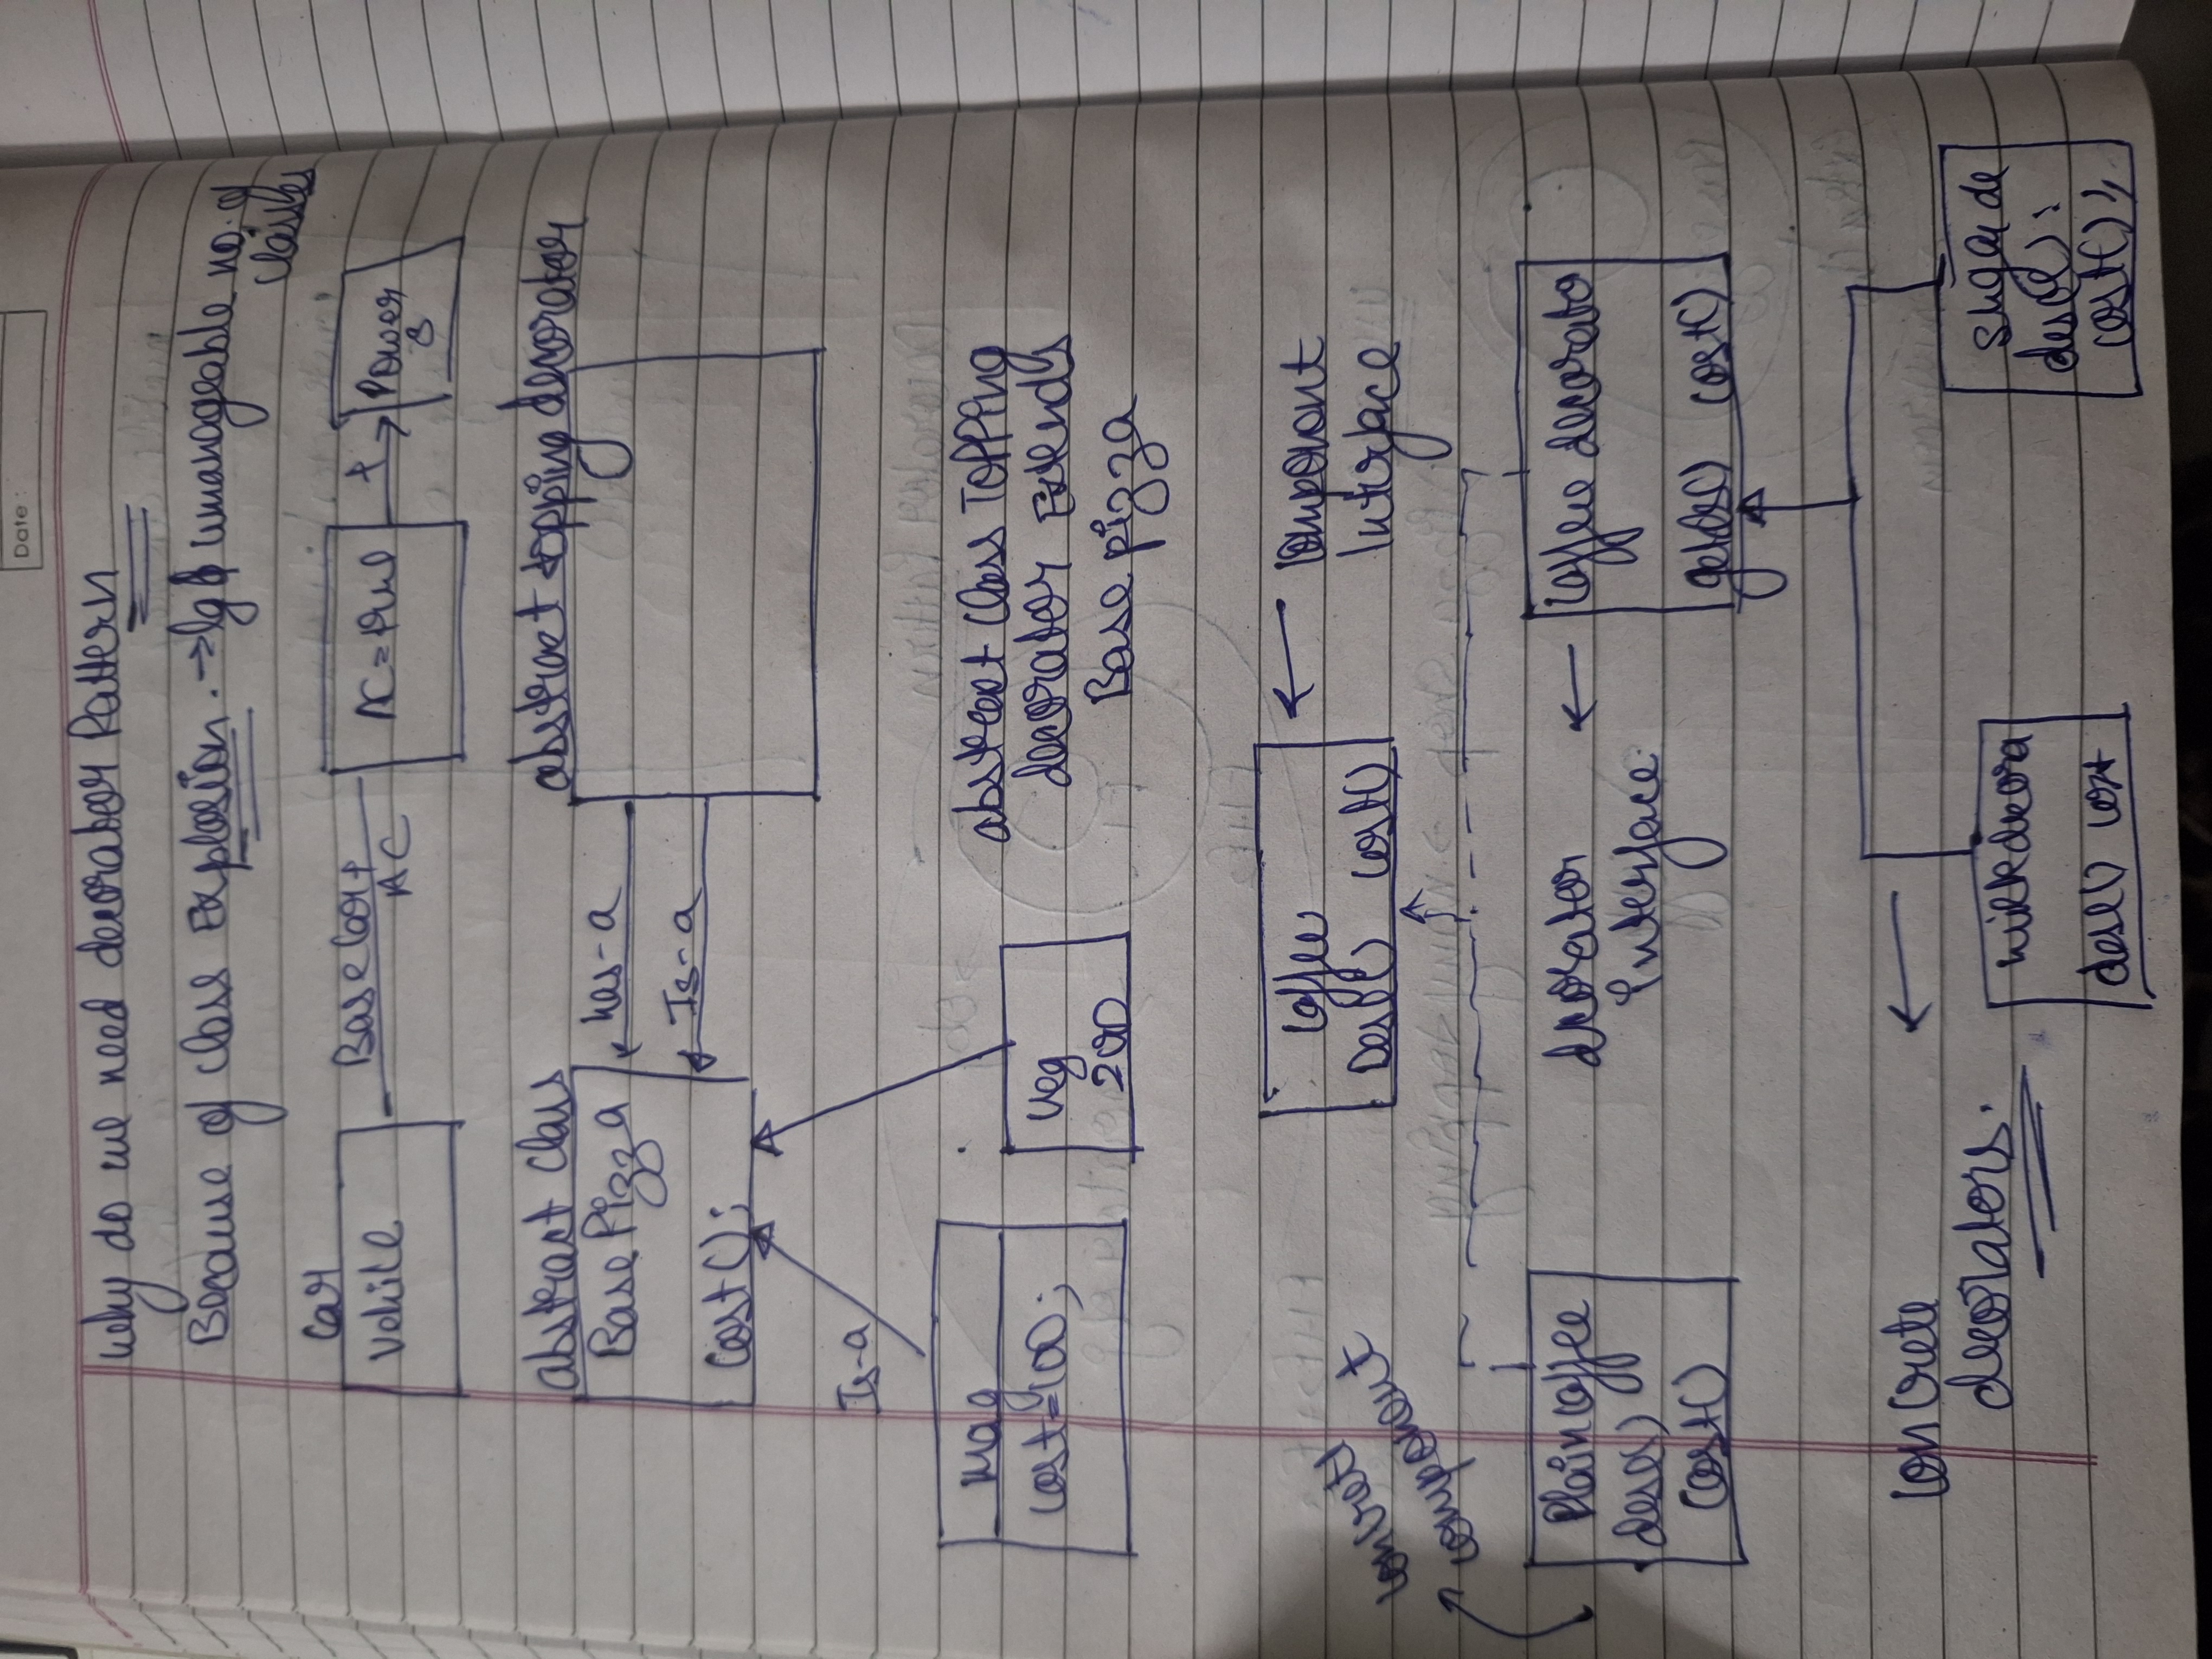 Date :
Why do we need decorator Pattern
Because of class Explosion. → lg & unmanageable no. of
classes
Car
Vehile
Base Car +
AC
AC =
+
Power
S
abstract class
abstract topping decorator
Base Pizza
has-a
Is-a
Cost();
Is-a
mag
cost=100;
Veg
200
abstract class Topping
decorator Extends
Base pizza
Coffee
Desc() cost()
Component
Interface
concrete
component
Plain Coffee
desc()
Cost()
decorator
Interface
Coffee decorato
getdes() cost()
Concrete
decorators.
milkdecora
desc() cost
sugar de
desc():
cost();